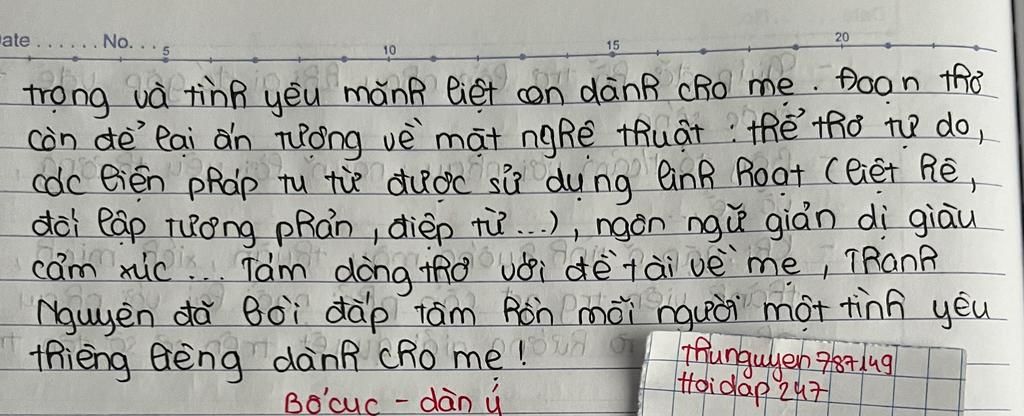 ate ...... No...
5 10 15 20
trọng và tình yêu mãnh liệt con dành cho mẹ. Đoạn thơ
còn để lại ấn tượng về mặt nghệ thuật: thể thơ tự do,
các biện pháp tu từ được sử dụng linh hoạt (liệt kê,
đối lập tương phản, điệp từ...), ngôn ngữ giản dị giàu
cảm xúc... Tám dòng thơ với đề tài về mẹ, Thanh
Nguyên đã bồi đắp tâm hồn mỗi người một tình yêu
thiêng liêng dành cho mẹ!
Bố cục - dàn ý
thunguyen787149
Hoidap247